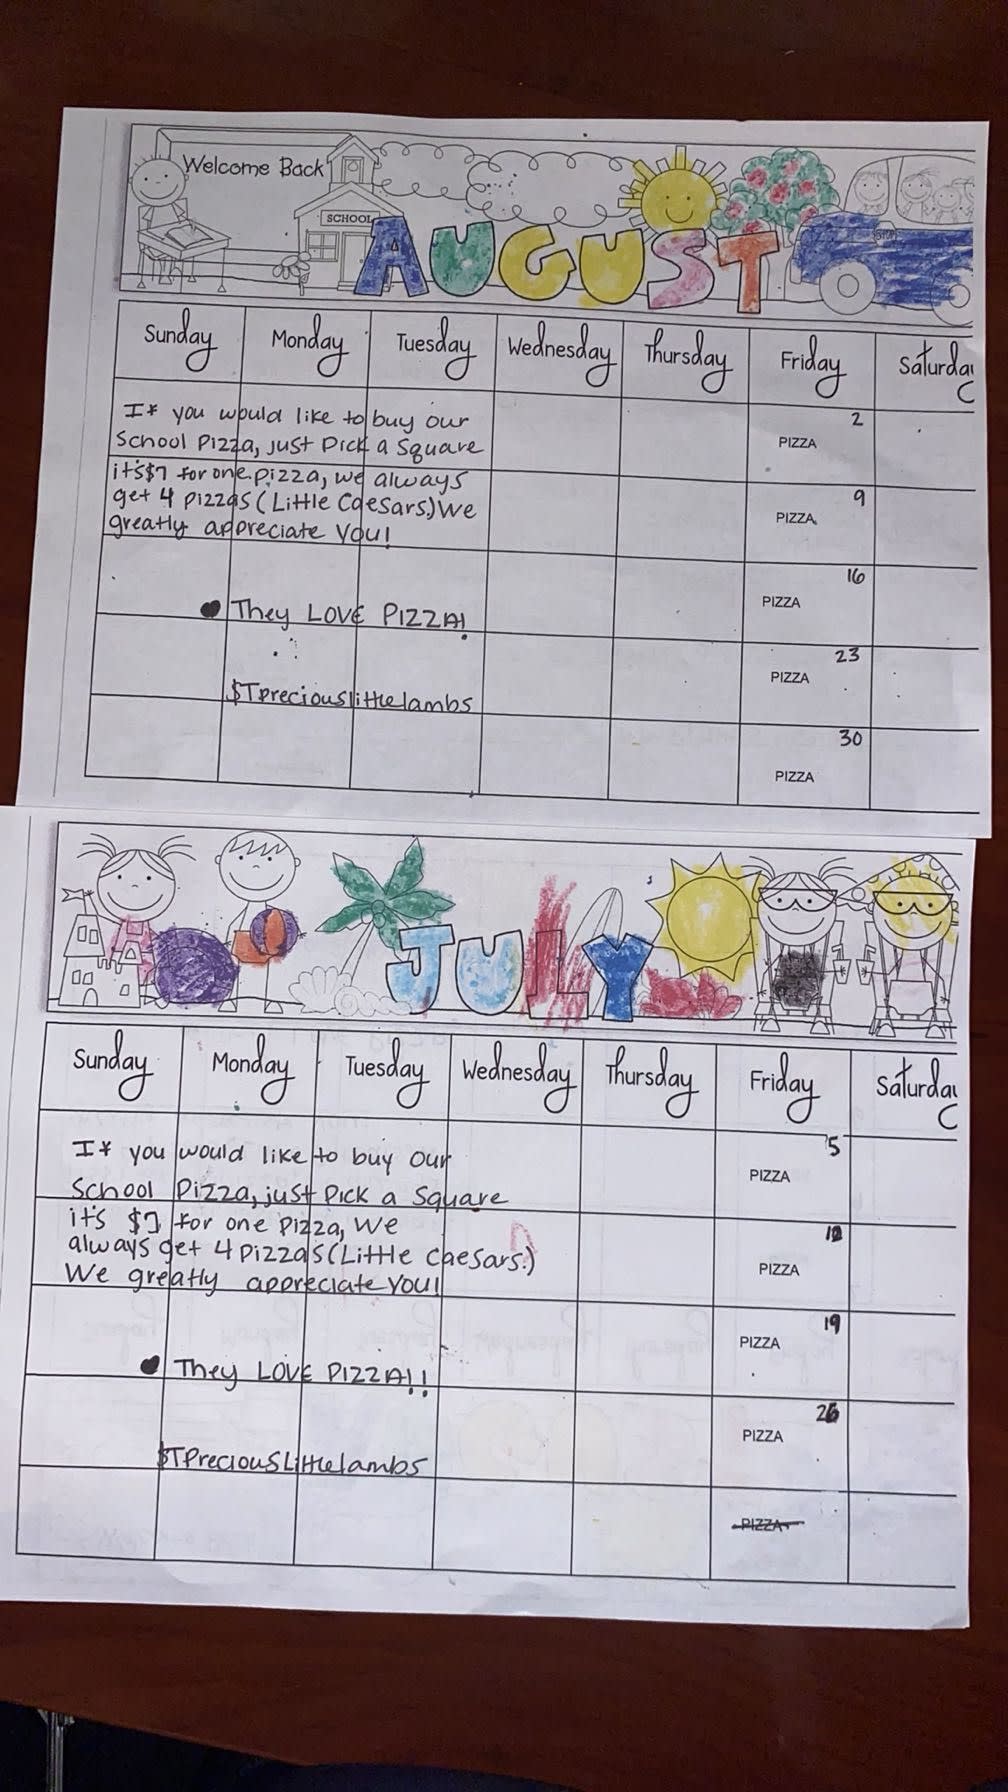 Welcome Back
SCHOOL
AUGUST
Sunday Monday Tuesday Wednesday Thursday Friday Saturda
If you would like to buy our
School Pizza, just Pick a Square
2
PIZZA
it's $7 for one pizza, we always
get 4 pizzas (Little Caesars.) We
greatly appreciate you!
9
PIZZA
16
PIZZA
They LOVE PIZZA!
23
PIZZA
$Tpreciouslittlelambs
30
PIZZA
JULY
Sunday Monday Tuesday Wednesday Thursday Friday Saturda
If you would like to buy our
School Pizza, just Pick a Square
5
PIZZA
it's $7 for one pizza, we
always get 4 pizzas (Little Caesars.)
We greatly appreciate you!
12
PIZZA
19
PIZZA
They LOVE PIZZA!!
26
PIZZA
$TPreciousLittlelambs
PIZZA